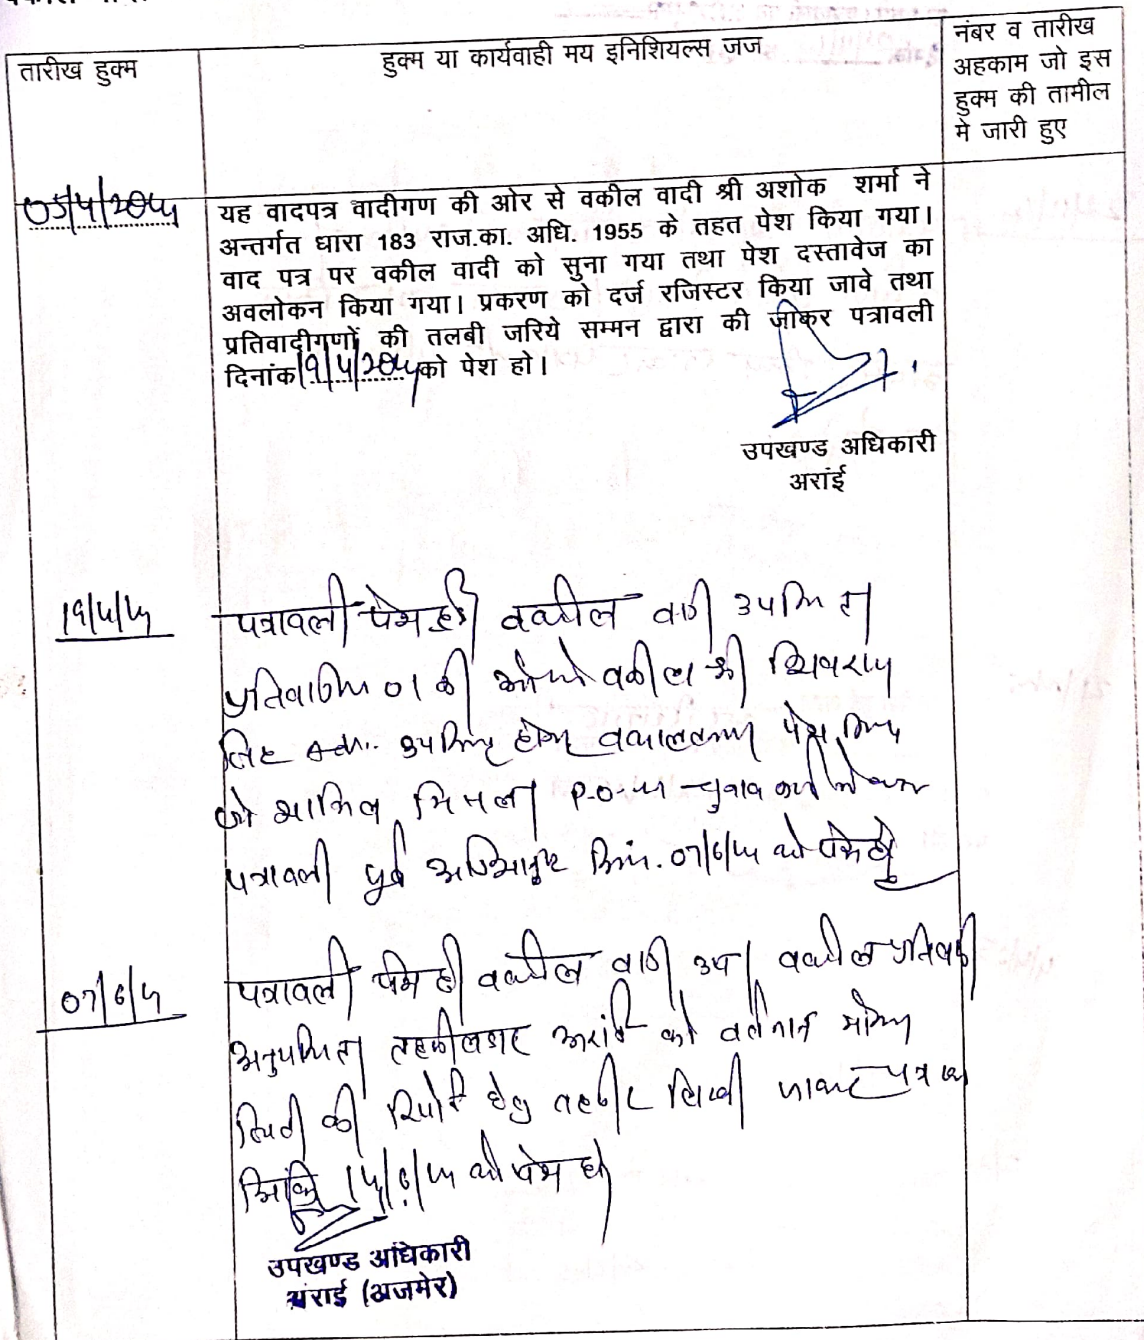 तारीख हुक्म
हुक्म या कार्यवाही मय इनिशियल्स जज
नंबर व तारीख
अहकाम जो इस
हुक्म की तामील
मे जारी हुए
यह वादपत्र वादीगण की ओर से वकील वादी श्री अशोक शर्मा ने
अन्तर्गत धारा 183 राज.का. अधि. 1955 के तहत पेश किया गया।
वाद पत्र पर वकील वादी को सुना गया तथा पेश दस्तावेज का
अवलोकन किया गया। प्रकरण को दर्ज रजिस्टर किया जावे तथा
प्रतिवादीगणों की तलबी जरिये सम्मन द्वारा की जाकर पत्रावली
दिनांक को पेश हो।
उपखण्ड अधिकारी
अरांई
पत्रावली पेश हुई वकील वादी उपस्थित
की ओर से वकील श्री शिवराज
सिंह उपस्थित होकर वकालतनामा पेश किया
जो शामिल मिसल। P.O. चुनाव कार्य
पत्रावली पूर्व को पेश हो
पत्रावली पेश हुई वकील वादी उप। वकील प्रतिवादी
अनुपस्थित। तहसीलदार अरांई को वर्तमान मौका
स्थिती की रिपोर्ट हेतु तहरीर लिखी जाकर
को पेश हो
उपखण्ड अधिकारी
अंराई (अजमेर)